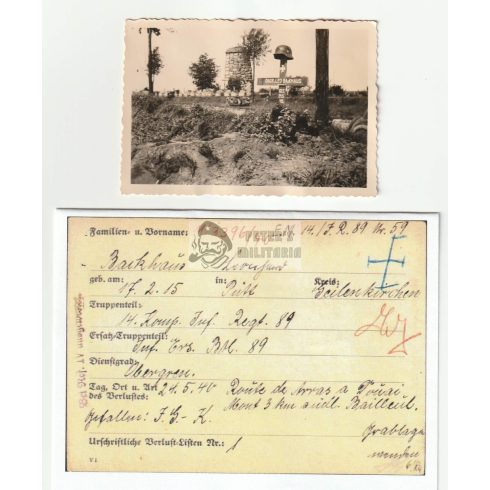 BACKHAUS
PETER'S
MILITARIA
Familien- u. Vorname: E.V. 14./J.R. 89 Nr. 59
Backhaus Leonhard
geb. am: 17.2.15 in: Kreis: Geilenkirchen
Truppenteil:
14. Komp. Inf. Regt. 89
Ersatz-Truppenteil:
Inf. Ers. Btl. 89
Dienstgrad:
Obergren.
Tag, Ort u. Art 21.5.40 Route de Arras a Douai
des Verlustes: Mont 3 km südl. Bailleul.
Gefallen: J.G.-K. Grablage
Urschriftliche Verlust-Listen Nr.: 1
VI